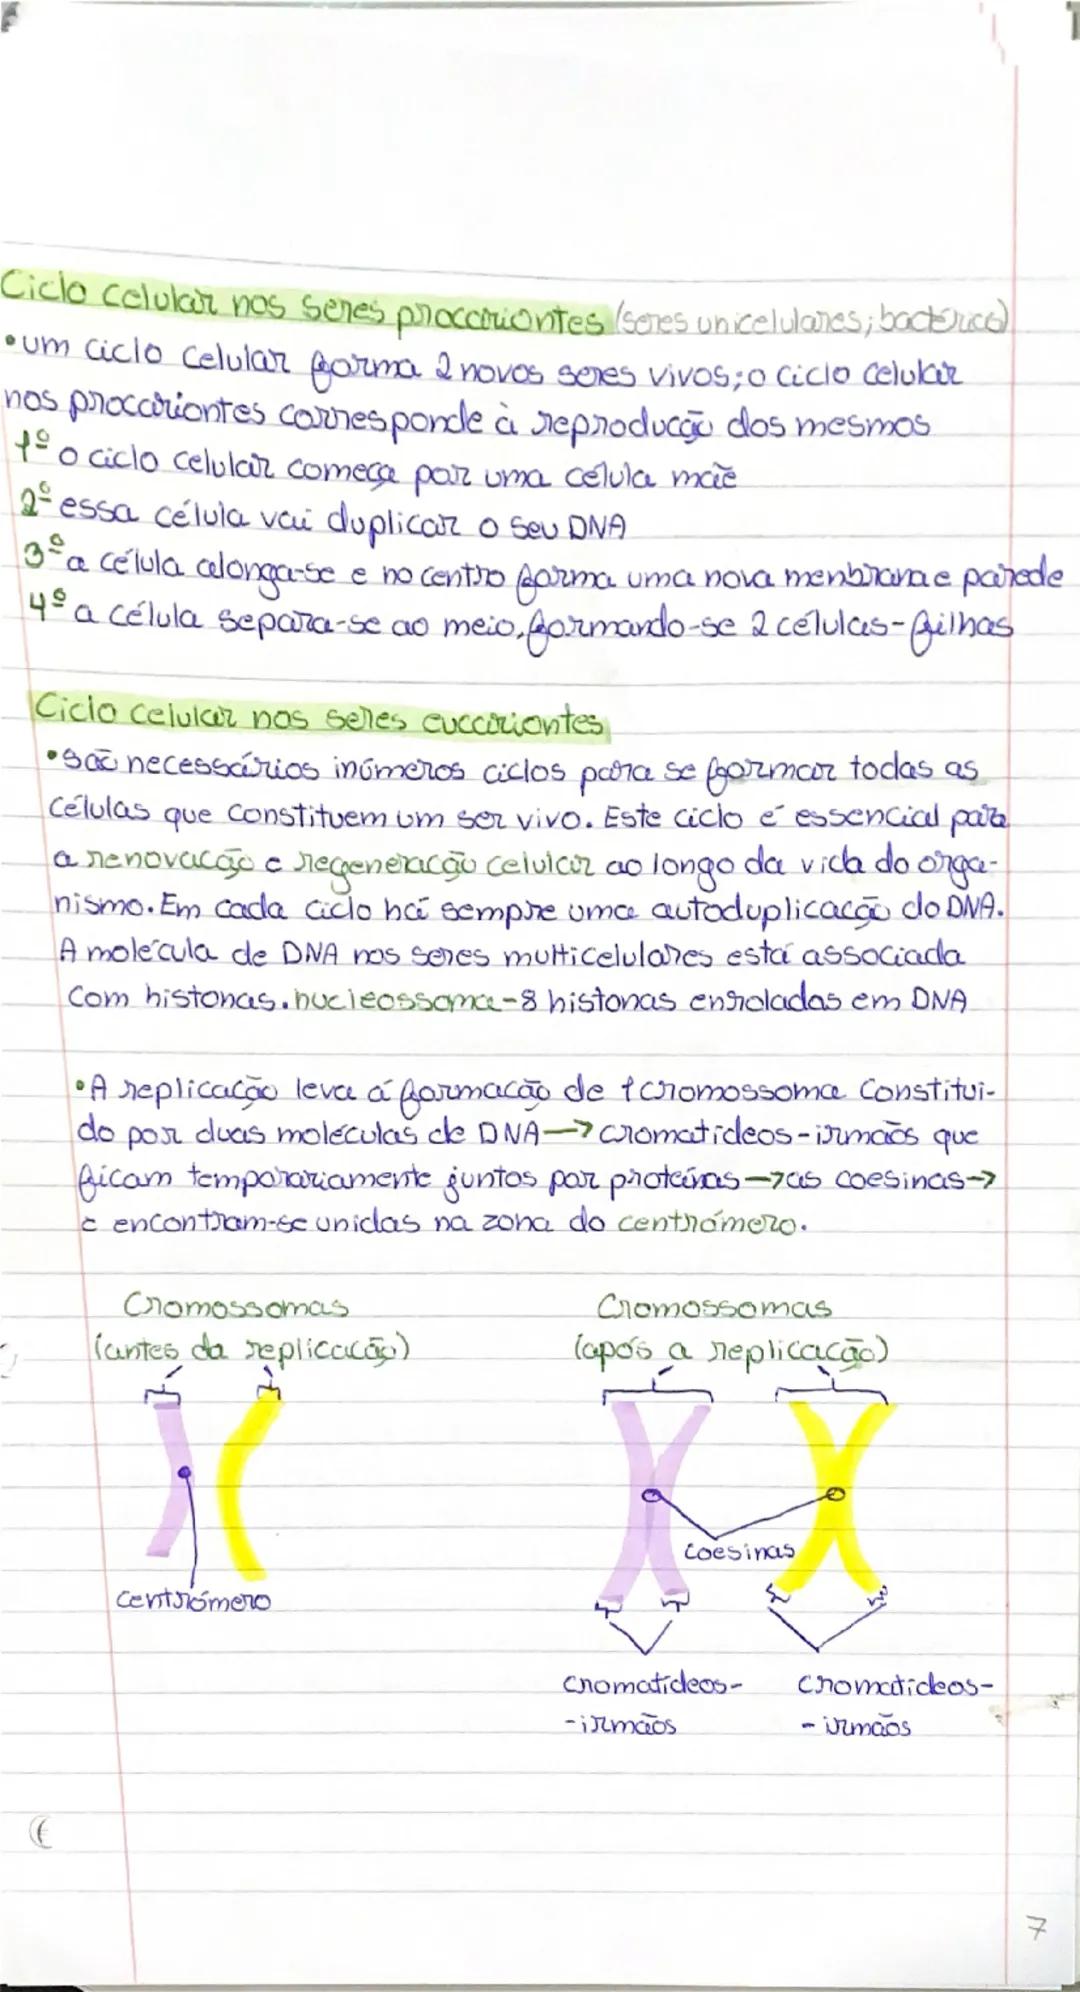 Ciclo celular nos seres procariontes (seres unicelulares; bactérica)
•um ciclo celular forma 2 novos seres vivos; o ciclo celular
nos procariontes corresponde à reprodução dos mesmos
1º o ciclo celular começa por uma célula mãe
2º essa célula vai duplicar o seu DNA
3º a célula alonga-se e no centro forma uma nova menbrana e parede
4º a célula separa-se ao meio, formando-se 2 células-filhas
Ciclo celular nos seres eucariontes
•São necessários inúmeros ciclos para se formar todas as
células que constituem um ser vivo. Este ciclo é essencial para
a renovação e regeneração celular ao longo da vida do orga-
nismo. Em cada ciclo há sempre uma autoduplicação do DNA.
A molécula de DNA nos seres multicelulares está associada
com histonas. nucleossoma-8 histonas enroladas em DNA
•A replicação leva á formação de 1 cromossoma constitui-
do por duas moléculas de DNA → cromatídeos-irmãos que
ficam temporariamente juntos por proteínas → as coesinas →
e encontram-se unidas na zona do centrómero.
Cromossomas
(antes da replicação)
Cromossomas
(após a replicação)
coesinas
centrómero
cromatídeos-
-irmãos
cromatídeos-
-irmãos
7